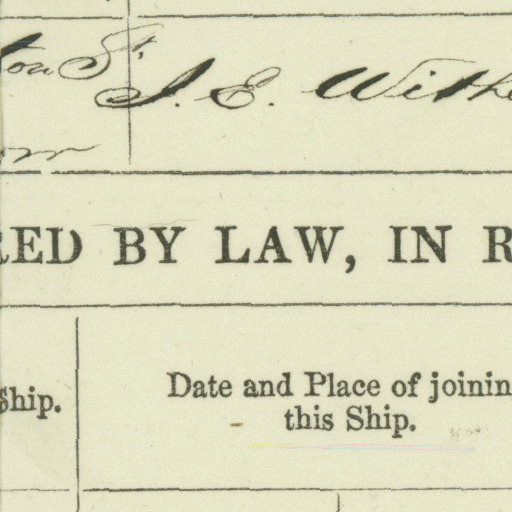 ton St. J. E. Withe
RED BY LAW, IN R
Ship.
Date and Place of joinin
this Ship.